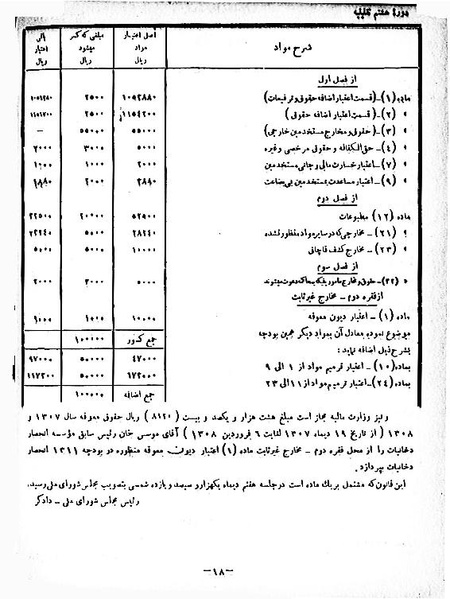 دورهٔ هفتم تقنینیه
شرح مواد | اصل اعتبار مواد ریال | مبلغی که کسر میشود ریال | باقی اعتبار ریال
از فصل اول
ماده (۱) ـ (قسمت اعتبار اضافه حقوق و ترفیعات) ۱۰۵۲۸۸۰ ۲۵۰۰
» (۲) ـ (قسمت اعتبار اضافه حقوقی) ۱۱۵۴۲۰۰ ۲۵۰۰
» (۳) ـ (حقوق و مخارج مستخدمین خارجی) ۵۵۰۰۰ ۵۵۰۰۰ —
» (۴) ـ حق‌الکفاله و حقوق مرخصی و غیره ۵۰۰۰ ۳۰۰۰ ۲۰۰۰
» (۷) ـ اعتبار خسارت مالی و جانی مستخدمین ۲۰۰۰ ۱۰۰۰ ۱۰۰۰
» (۹) ـ اعتبار مساعدت بمستخدمین بی بضاعت ۲۰۰۰
از فصل دوم
ماده (۱۲) مطبوعات ۲۰۰۰۰
» (۲۱) ـ مخارجی که در سایر مواد منظور نشده ۲۸۲۴۰ ۵۰۰۰
» (۲۳) ـ مخارج کشف قاچاق ۱۰۰۰۰ ۵۰۰۰ ۵۰۰۰
از فصل سوم
دعوت میشوند ۵۰۰۰ ۳۰۰۰ ۲۰۰۰
از فقره دوم ـ مخارج غیر ثابت
ماده (۱) ـ اعتبار دیون معوقه ۱۰۰۰۰ ۱۰۰۰ ۹۰۰۰
موضوع نموده بمعادل آن بمواد دیگر همین بودجه جمع کسور ۱۰۰۰۰۰
بشرح ذیل اضافه نماید:
بماده (۱۰) ـ اعتبار ترمیم مواد از ۱ الی ۹ ۴۷۰۰۰ ۵۰۰۰۰ ۹۷۰۰۰
بماده (۲۴) ـ اعتبار ترمیم مواد از ۱۱ الی ۲۳ ۵۰۰۰۰
جمع اضافه ۱۰۰۰۰۰
و نیز وزارت مالیه مجاز است مبلغ هشت هزار و یکصد و بیست (۸۱۲۰) ریال حقوق معوقه سال ۱۳۰۷ و
۱۳۰۸ (از تاریخ ۱۹ دیماه ۱۳۰۷ لغایت ۶ فروردین ۱۳۰۸) آقای موسی خان رئیس سابق مؤسسه انحصار
دخانیات را از محل فقره دوم ـ مخارج غیر ثابت ماده (۱) اعتبار دیون معوقه منظوره در بودجه ۱۳۱۱ انحصار
دخانیات بپردازد.
این قانون که مشتمل بر یک ماده است در جلسه هفتم دیماه یکهزار و سیصد و یازده شمسی بتصویب مجلس شورای ملی رسید.
رئیس مجلس شورای ملی ـ دادگر
ـ۱۸ـ